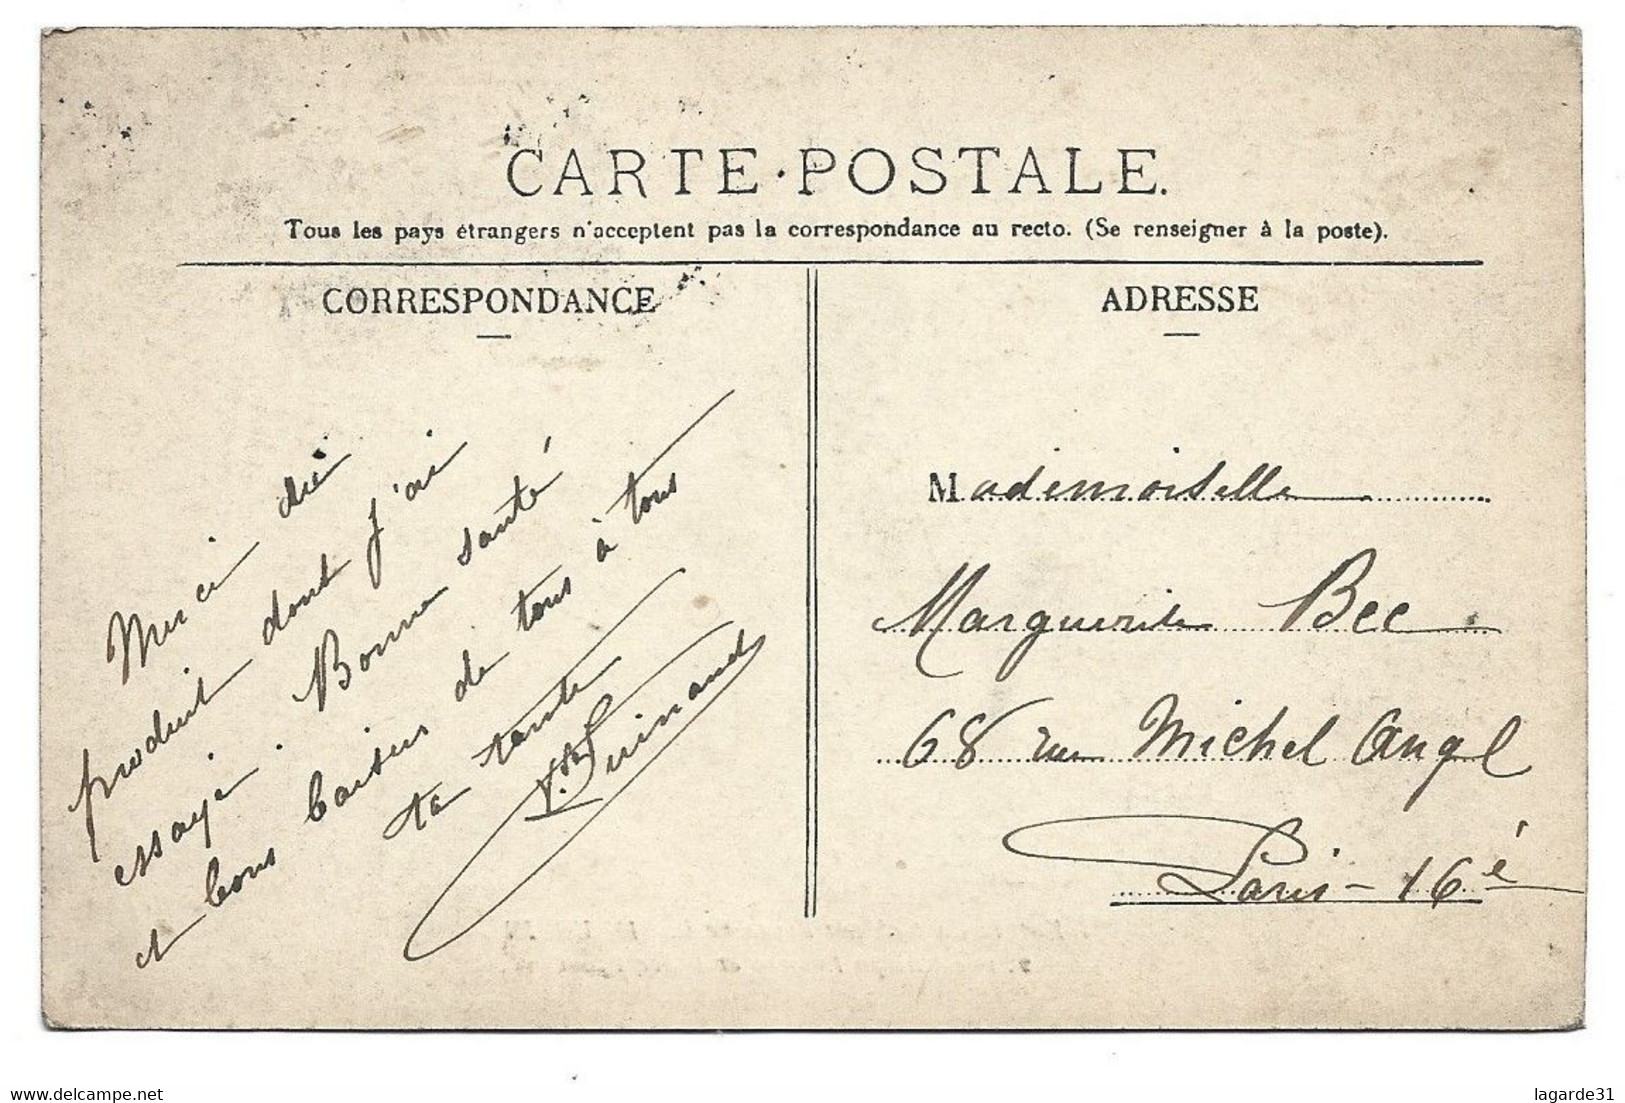 CARTE·POSTALE.
Tous les pays étrangers n'acceptent pas la correspondance au recto. (Se renseigner à la poste).
CORRESPONDANCE
Merci du
produit dont j'ai
essayé. Bonne santé
et bons baisers de tous à tous
ta tante
Guinand
ADRESSE
Mademoiselle
Marguerite Bec
68 rue Michel Ange
Paris - 16è
lagarde31